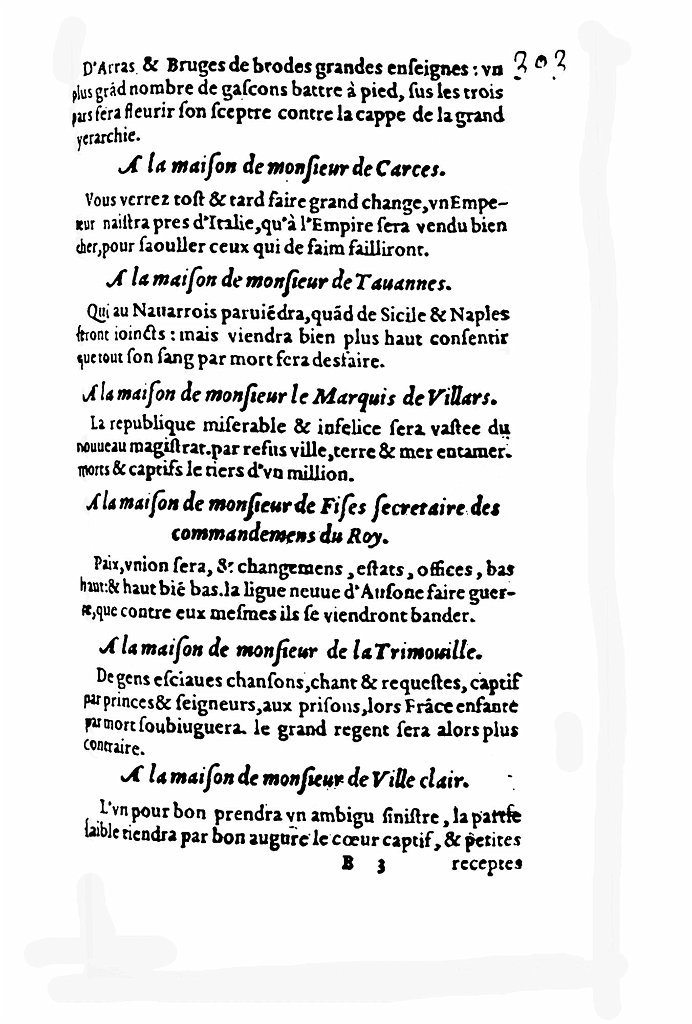 303
D'Arras & Bruges de brodes grandes enſeignes : vn
plus grãd nombre de gaſcons battre à pied, ſus les trois
pars ſera fleurir ſon ſceptre contre la cappe de la grand
yerarchie.
A la maiſon de monſieur de Carces.
Vous verrez toſt & tard faire grand change, vn Empe-
reur naiſtra pres d'Italie, qu'à l'Empire ſera vendu bien
cher, pour ſaouller ceux qui de faim failliront.
A la maiſon de monſieur de Tauannes.
Qui au Nauarrois paruiédra, quãd de Sicile & Naples
ſeront ioincts : mais viendra bien plus haut conſentir
que tout ſon ſang par mort ſera desfaire.
A la maiſon de monſieur le Marquis de Villars.
La republique miſerable & infelice ſera vaſtee du
nouueau magiſtrat. par refus ville, terre & mer entamer.
morts & captifs le tiers d'vn million.
A la maiſon de monſieur de Fiſes ſecretaire des
commandemens du Roy.
Paix, vnion ſera, & changemens, eſtats, offices, bas
haut: & haut bié bas. la ligue neuue d'Auſone faire guer-
re, que contre eux meſmes ils ſe viendront bander.
A la maiſon de monſieur de la Trimouille.
De gens eſclaues chanſons, chant & requeſtes, captif
par princes & ſeigneurs, aux priſons, lors Frãce enfante
par mort ſoubiuguera. le grand regent ſera alors plus
contraire.
A la maiſon de monſieur de Ville clair.
L'vn pour bon prendra vn ambigu ſiniſtre, la partſe
faible tiendra par bon augure le cœur captif, & petites
B 3 receptes